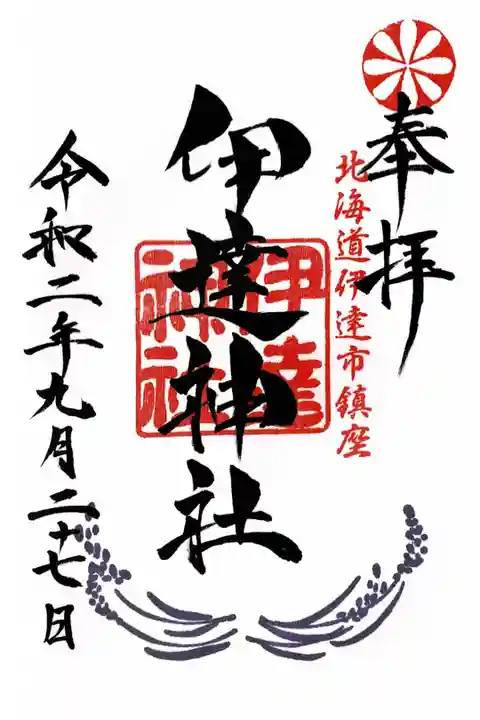 奉拝
北海道伊達市鎮座
伊達神社
伊達神社
令和二年九月二十七日